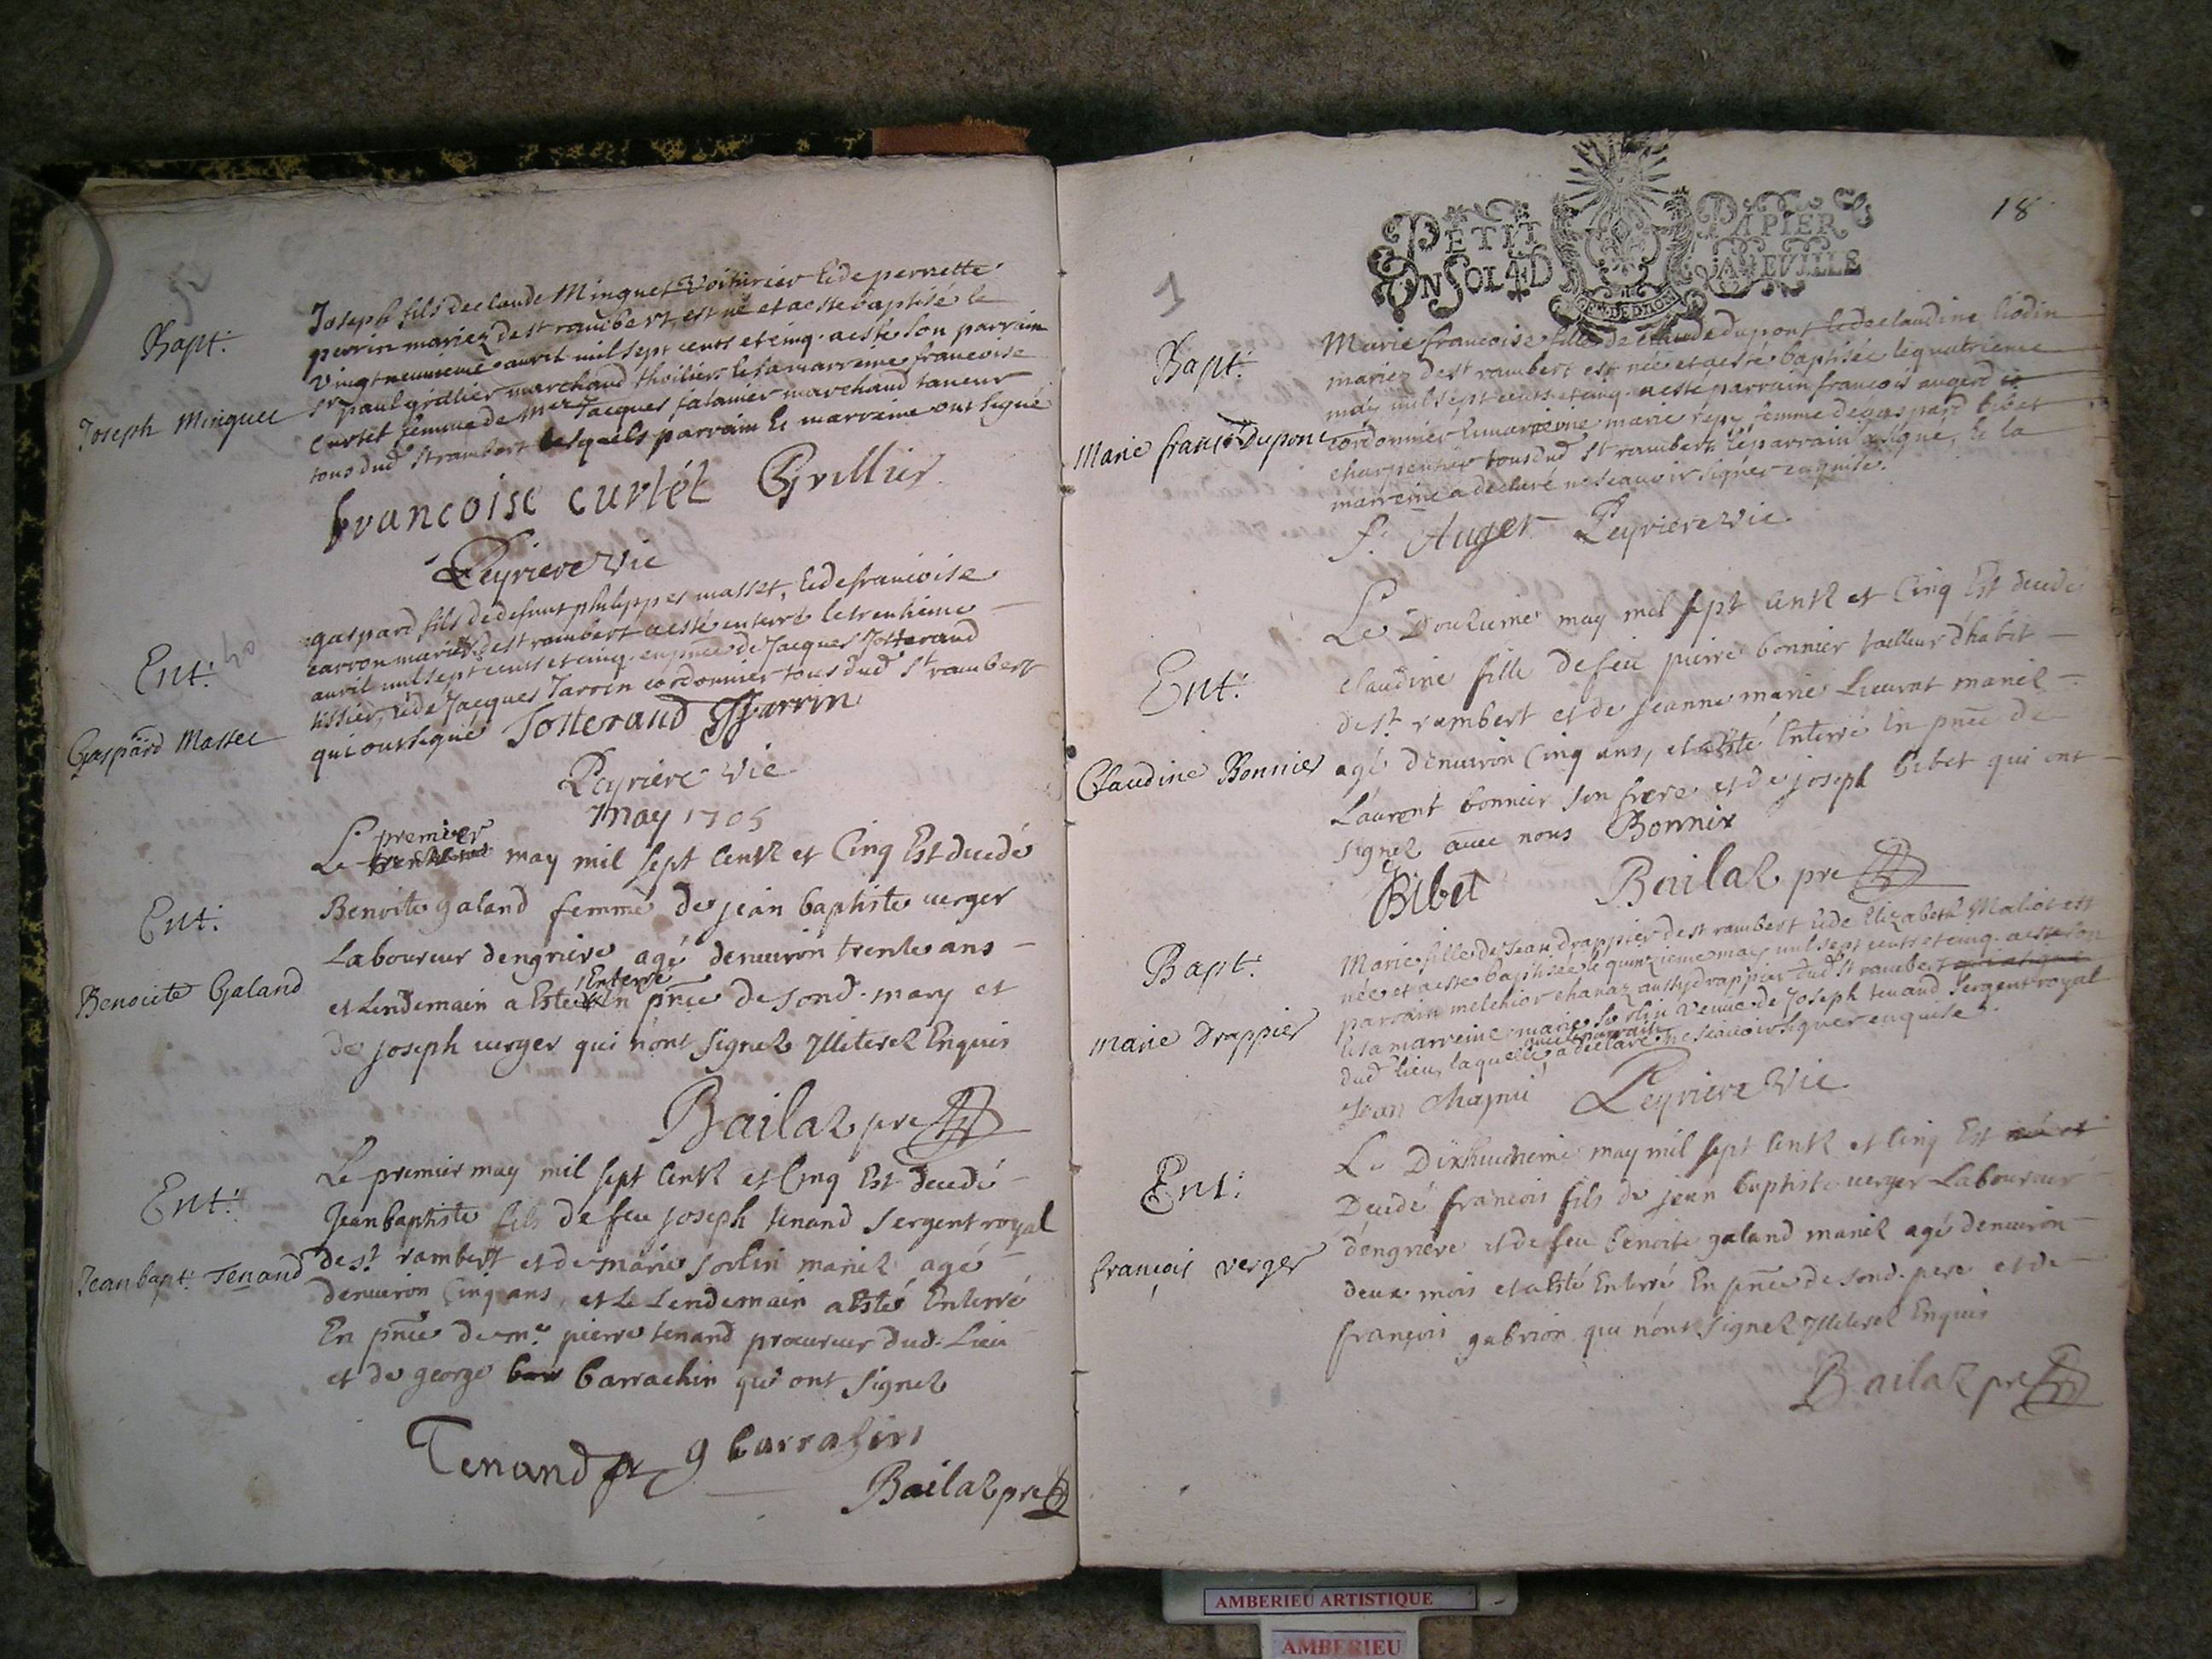 Bapt:
Joseph Minguet
Joseph fils de claude Minguet Voiturier & de pernette
perrin mariez de st rambert, est né et a esté baptisé le
vingtneuvieme avril mil sept cents et cinq. a esté son parrain
sr paul grillier marchand thoilier & sa marreine francoise
curtet femme de Mer Jacques falamier marchand taneur
tous dud st rambert lesquels parrain & marreine ont signé
francoise curtét Grillier
Leyriere vic
Ent:
Gaspard Masset
gaspard fils de defunt philippes masset, & de francoise
carron mariez de st rambert a esté enterré le trentieme
avril mil sept cents et cinq. en pnce de Jacques Jotterand
tissier, & de Jacques Jarrin cordonnier tous dud st rambert
qui ont signé Jotterand JJarrin
Leyriere vic
may 1705
Ent:
Benoite Galand
premier
Le may mil sept centz et Cinq Est decedé
Benoite galand femme de jean baptiste verger
Laboureur dengrieve agé denviron trente ans
Enterré
et Lendemain a Esté En pnce de sond. mary et
de joseph verger qui n'ont signez Illiterez Enquis
Bailaz pre
Ent:
Jean bapt: Tenand
Le premier may mil sept centz et Cinq Est decedé
Jean baptiste fils de feu joseph tenand sergent royal
de st rambert et de marie sorlin mariez agé
denviron Cinq ans, et Le Lendemain a Esté Enterré
En pnce de me pierre tenand procureur dud. Lieu
et de george bar barrachin qui ont signez
Tenand g barrasin
Bailaz pre
18
1
PETIT PAPIER
UN SOL 4 D LA FEUILLE
Bapt:
Marie franc Dupont
Marie francoise fille de claude dupont & de claudine liodin
mariez de st rambert est née et a esté baptisée le quatrieme
may mil sept cents et cinq. a esté parrain francois augerd
cordonnier & marreine marie rey femme de gaspard bibet
charpentier tous dud st rambert, le parrain a signé, & la
marreine a declaré ne scavoir signer enquise.
f. Auger Leyriere vic
Ent:
Claudine Bonnier
Le Douzieme may mil sept centz et Cinq Est decedé
claudine fille de feu pierre bonnier tailleur d'habit
de st rambert et de jeanne marie Lievrat mariez
agé denviron Cinq ans, et a Esté Enterré En pnce de
Laurent bonnier son frere et de joseph bibet qui ont
signez avec nous Bonnier
Bibet Bailaz pre
Bapt:
Marie Drappier
Marie fille de Jean drappier de st rambert & de Elizabeth Maliot est
née et a esté baptisée le quinzieme may mil sept cents et cinq. a esté son
parrain melchior chanaz drappier dud st rambert
& sa marreine marie sorlin veuve de Joseph tenand sergent royal
dud lieu, laquelle a declaré ne scavoir signer enquise.
Jean Leyriere vic
Ent:
francois verger
Le Dixhuictieme may mil sept centz et Cinq Est né et
Decedé francois fils de jean baptiste verger Laboureur
dengrieve et de feu benoite galand mariez agé denviron
deux mois et a Esté Enterré En pnce de sond. pere et de
françois gabrion qui n'ont signez Illiterez Enquis
Bailaz pre
AMBERIEU ARTISTIQUE
AMBERIEU